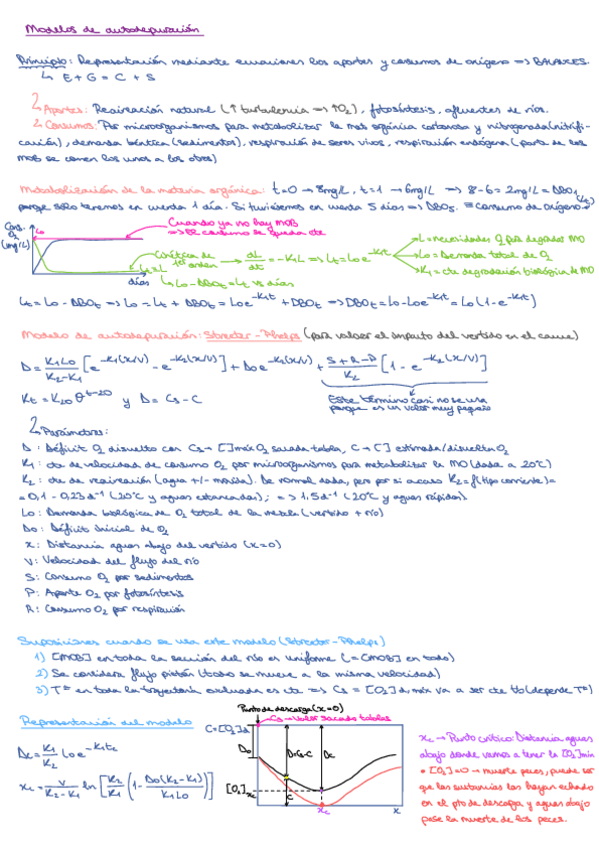 Modelos de autodepuración
Principio: Representación mediante ecuaciones los aportes y consumos de oxígeno => BALANCES.
↳ E + G = C + S
↳ Aportes: Reaireación natural (↑ turbulencia => ↑O₂), fotosíntesis, afluentes de ríos.
↳ Consumos: Por microorganismos para metabolizar la mat orgánica carbonosa y nitrogenada (nitrifi-
cación), demanda béntica (sedimentos), respiración de seres vivos, respiración endógena (parte de los
MOB se comen los unos a los otros)
Metabolización de la materia orgánica: t=0 → 8mg/L, t=1 → 6mg/L => 8-6 = 2mg/L = DBO₁
porque solo tenemos en cuenta 1 día. Si tuviésemos en cuenta 5 días => DBO₅. ≡ Consumo de oxígeno
Cons. O₂ (mg/L)
Lo
Cuando ya no hay MOB
=> El consumo se queda cte
Cinética de 1er orden → dL/dt = -K₁L => Lt = Lo e^-K₁t
L = necesidades O₂ para degradar MO
Lo = Demanda total de O₂
K₁ = cte degradación biológica de MO
t=L
días
↳ Lo - DBOt = Lt vs días
Lt = Lo - DBOt => Lo = Lt + DBOt = Lo e^-K₁t + DBOt => DBOt = Lo - Lo e^-K₁t = Lo (1 - e^-K₁t)
Modelo de autodepuración: Streeter-Phelps (para valorar el impacto del vertido en el cauce)
D = K₁Lo/(K₂-K₁) [e^-K₁(x/v) - e^-K₂(x/v)] + Do e^-K₂(x/v) + (S+R-P)/K₂ [1 - e^-K₂(x/v)]
Kt = K₂₀ θ^t-20 y D = Cs - C
Este término casi no se usa
porque es un valor muy pequeño
↳ Parámetros:
D: Déficit O₂ disuelto con Cs → [ ] máx O₂ sacada tabla, C → [ ] estimada/disuelta O₂
K₁: cte de velocidad de consumo O₂ por microorganismos para metabolizar la MO (dada a 20°C)
K₂: cte de reaireación (agua +/- movida). De normal dada, pero por si acaso K₂ = f(tipo corriente) =
= 0,1 - 0,23 d⁻¹ (20°C y aguas estancadas); = > 1,5 d⁻¹ (20°C y aguas rápidas)
Lo: Demanda biológica de O₂ total de la mezcla (vertido + río)
Do: Déficit inicial de O₂
x: Distancia aguas abajo del vertido (x=0)
V: Velocidad del flujo del río
S: Consumo O₂ por sedimentos
P: Aporte O₂ por fotosíntesis
R: Consumo O₂ por respiración
Suposiciones cuando se usa este modelo (Streeter-Phelps)
1) [MOB] en toda la sección del río es uniforme (= CMOB] en todo)
2) Se considera flujo pistón (todo se mueve a la misma velocidad)
3) Tª en toda la trayectoria evaluada es cte => Cs = [O₂]d,máx va a ser cte tb (depende Tª)
Representación del modelo
Dc = K₁/K₂ Lo e^-K₁tc
xc = V/(K₂-K₁) ln [K₂/K₁ (1 - Do(K₂-K₁)/(K₁Lo))]
Punto de descarga (x=0)
Cs → Valor sacado tablas
C=[O₂]d
Do
D=Cs-C
Dc
[O₂]xc
C
xc
x
xc → Punto crítico: Distancia aguas
abajo donde vamos a tener la [O₂]min
* [O₂]=0 → muerte peces, puede ser
que las sustancias las hayan echado
en el pto de descarga y aguas abajo
pase la muerte de los peces.